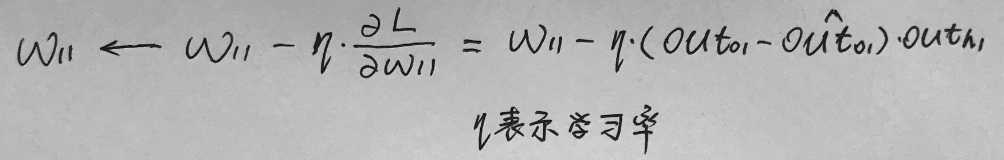 w₁₁ ← w₁₁ - η·∂L/∂w₁₁ = w₁₁ - η·(out₀₁ - out̂₀₁)·outₕ₁
η表示学习率